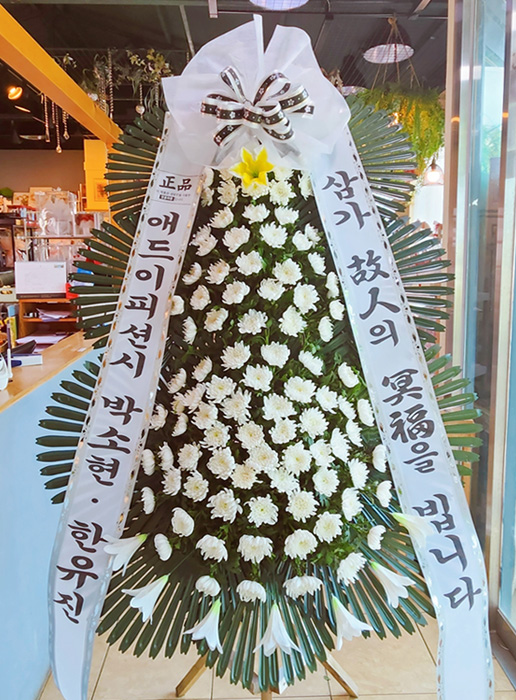 正品
애드이피션시 박소현·한유진
삼가 故人의 冥福을 빕니다